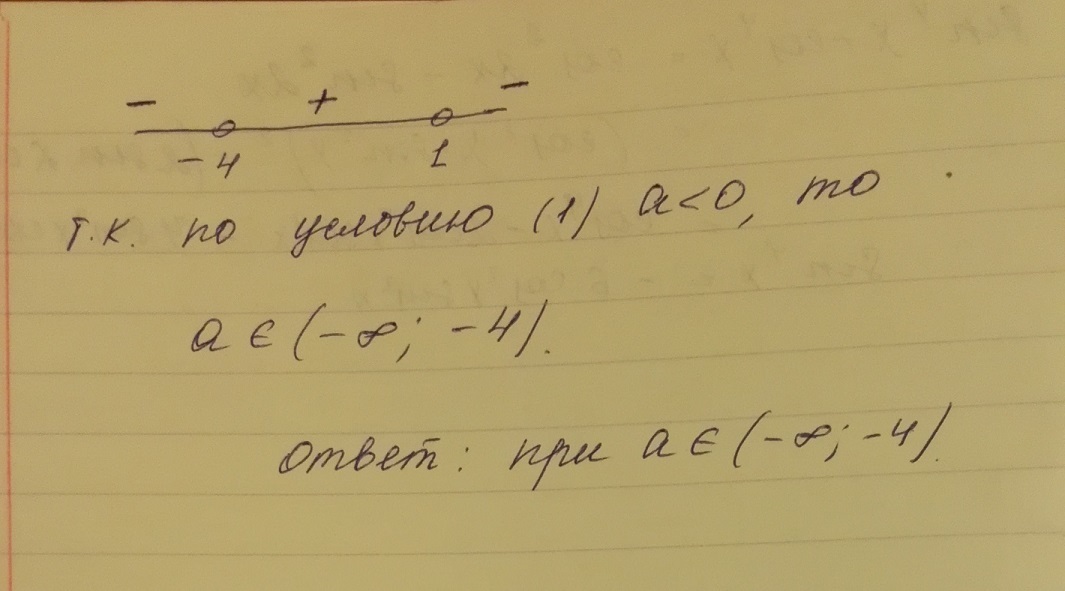 − + −
−4 1
т.к. по условию (1) a<0, то
a ∈ (−∞; −4).
Ответ: при a ∈ (−∞; −4).